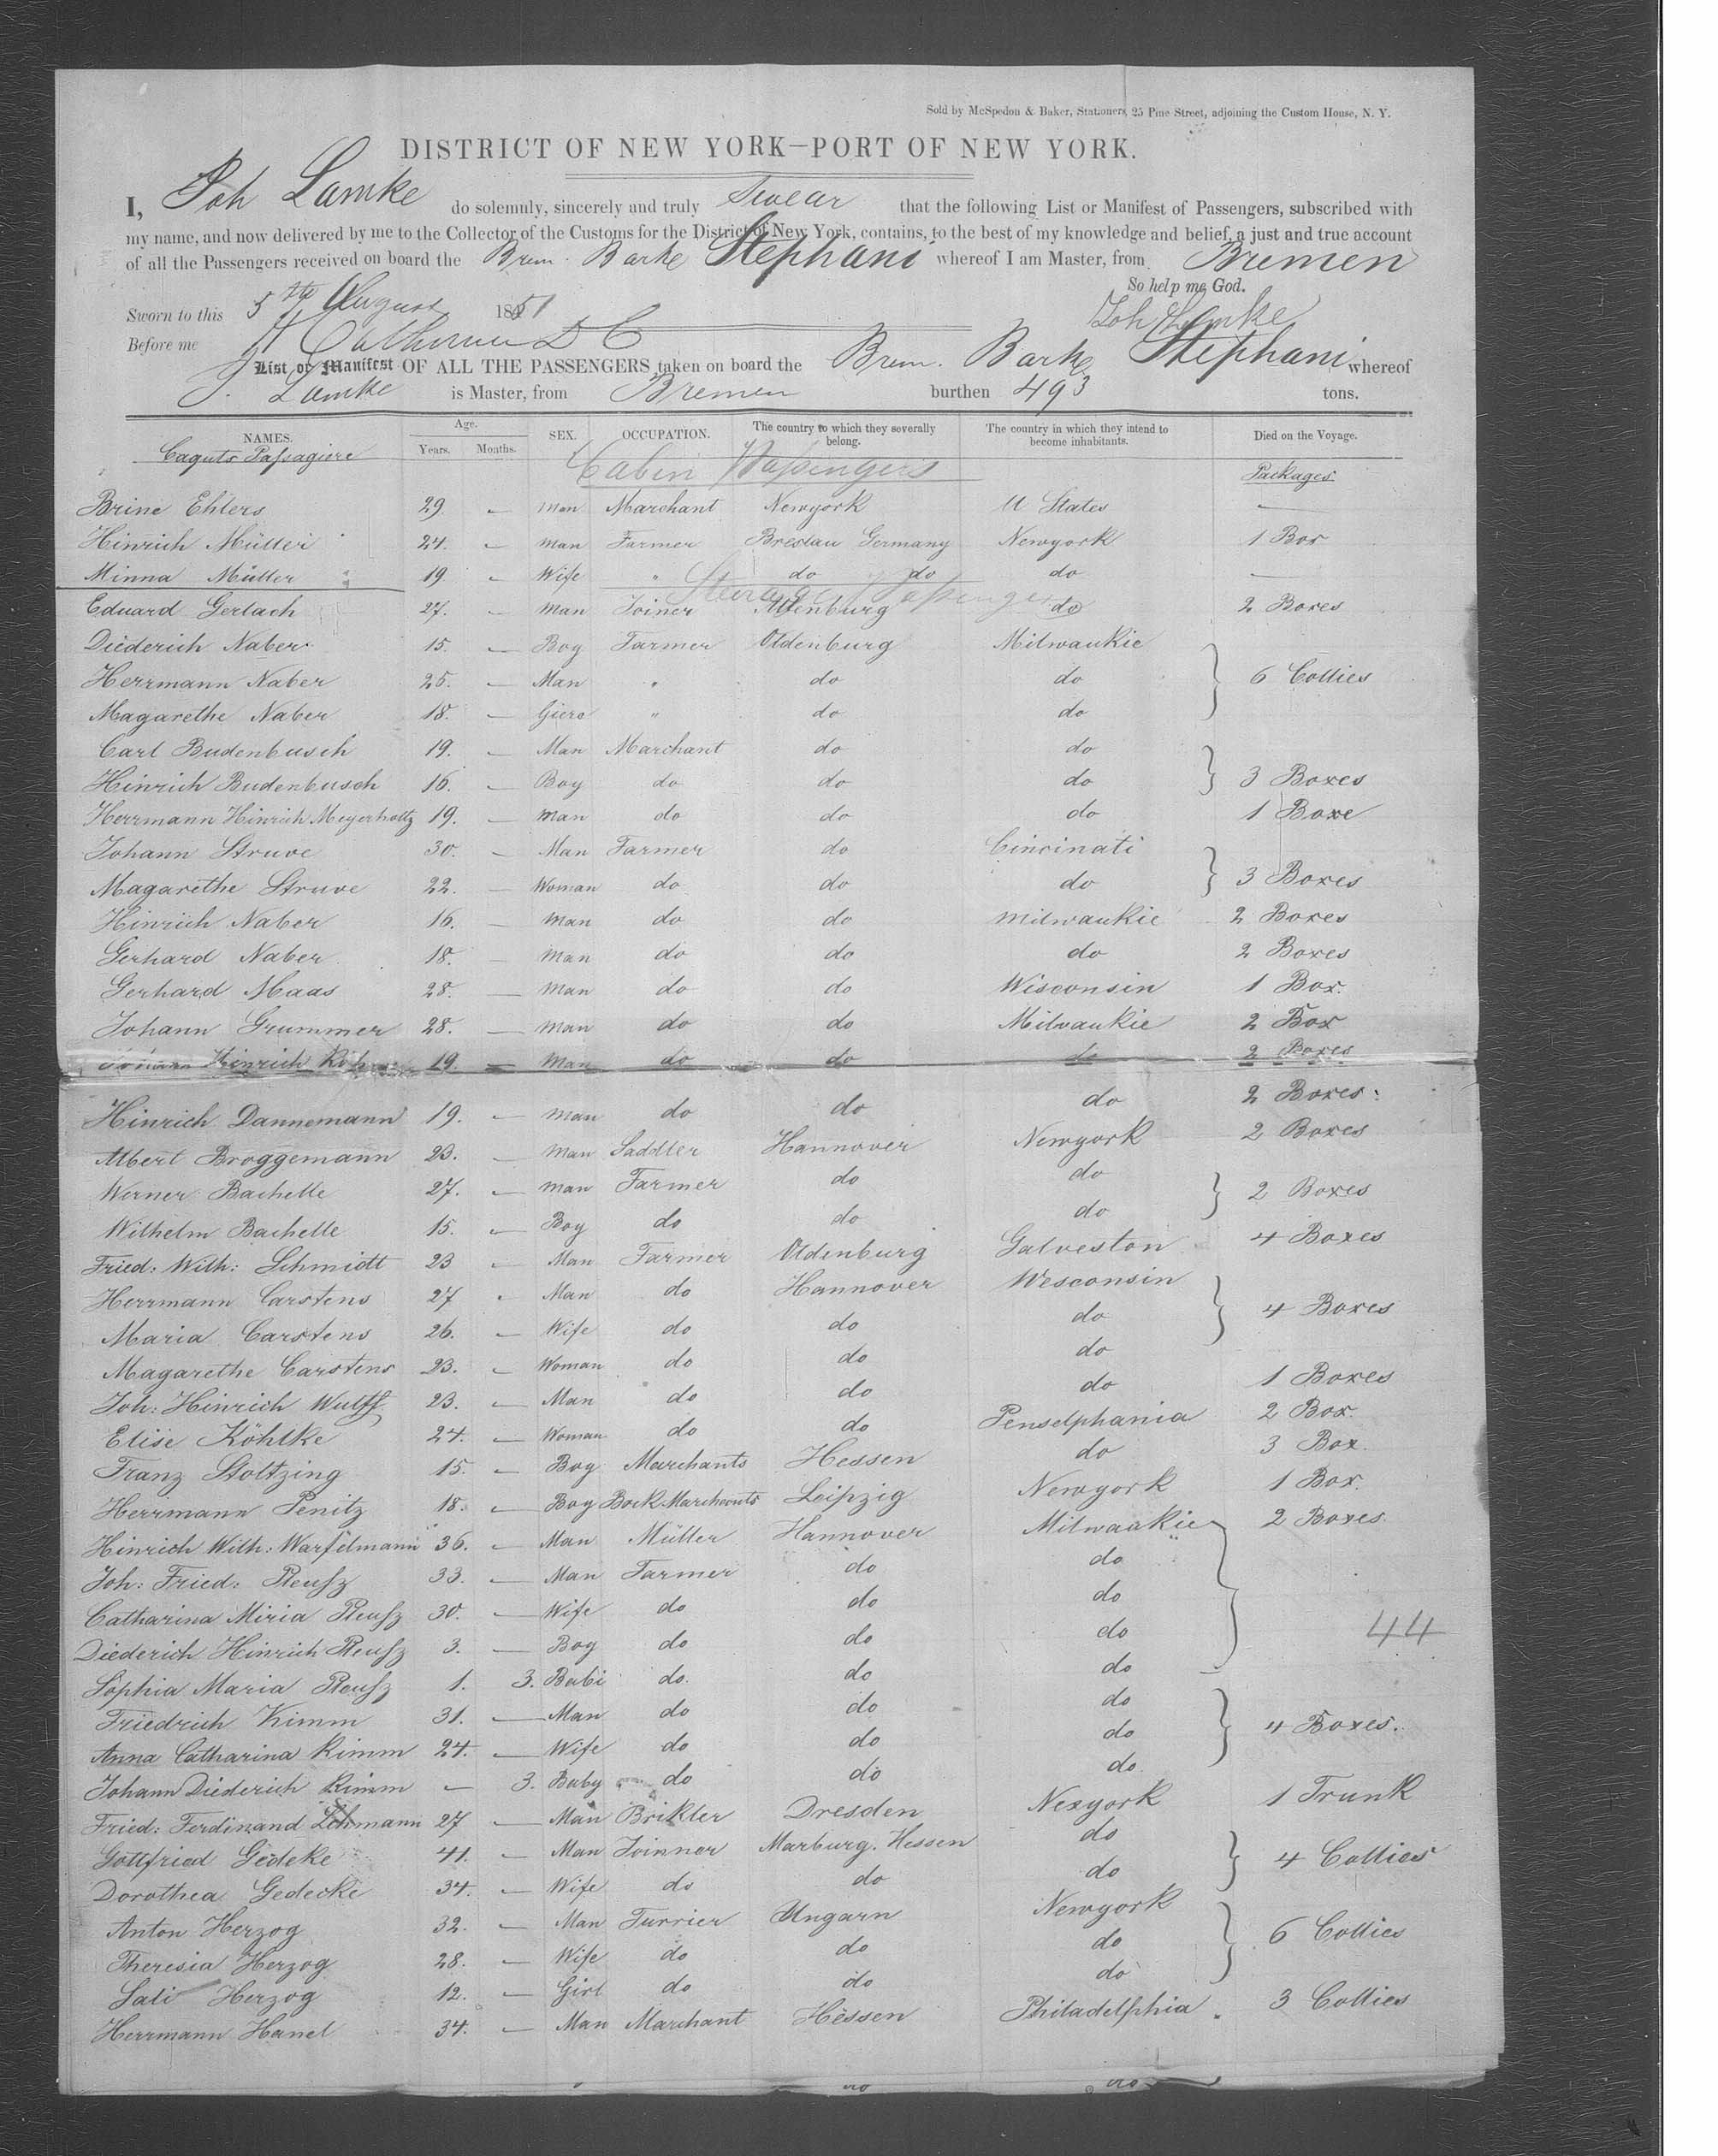 Sold by McSpedon & Baker, Stationers, 25 Pine Street, adjoining the Custom House, N. Y.
DISTRICT OF NEW YORK—PORT OF NEW YORK.
I, Joh Lamke do solemnly, sincerely and truly Swear that the following List or Manifest of Passengers, subscribed with
my name, and now delivered by me to the Collector of the Customs for the District of New York, contains, to the best of my knowledge and belief, a just and true account
of all the Passengers received on board the Brem. Barke Stephani whereof I am Master, from Bremen
So help me God.
Sworn to this 5th August 1851 Joh Lamke
Before me
List or Manifest OF ALL THE PASSENGERS taken on board the Brem. Barke Stephani whereof
J. Lamke is Master, from Bremen burthen 493 tons.
NAMES. Age. Years. Months. SEX. OCCUPATION. The country to which they severally belong. The country in which they intend to become inhabitants. Died on the Voyage.
Cajuts Passagiere Cabin Passengers Packages
Brine Ehlers 29 — man Marchant Newyork U States —
Hinrich Müller 24. — man Farmer Breslau Germany Newyork 1 Box
Minna Müller 19 — Wife " do do do —
Steerage Passengers
Eduard Gerlach 27. — Man Joiner Altenburg do 2 Boxes
Diederich Naber 15. — Boy Farmer Oldenburg Milwaukie
Herrmann Naber 25. — Man " do do 6 Collies
Magarethe Naber 18. — " do do
Carl Budenbusch 19. — Man Marchant do do
Hinrich Budenbusch 16. — Boy do do do 3 Boxes
Herrmann Hinrich Meyerholtz 19. — man do do do 1 Boxe
Johann Struve 30. — Man Farmer do Cincinati
Magarethe Struve 22. — Woman do do do 3 Boxes
Hinrich Naber 16. — man do do milwaukie 2 Boxes
Gerhard Naber 18. — man do do do 2 Boxes
Gerhard Maas 28. — man do do Wisconsin 1 Box.
Johann Grummer 28. — man do do Milwaukie 2 Box
Johann Hinrich 19. — man do do do 2 Boxes
Hinrich Dannemann 19. — man do do do 2 Boxes
Albert Broggemann 23. — man Saddler Hannover Newyork 2 Boxes
Werner Bachelle 27. — man Farmer do do 2 Boxes
Wilhelm Bachelle 15. — Boy do do do
Fried: Wilh: Schmidt 23 — Man Farmer Oldenburg Galveston 4 Boxes
Herrmann Carstens 27 — Man do Hannover Wesconsin
Maria Carstens 26. — Wife do do do 4 Boxes
Magarethe Carstens 23. — Woman do do do
Joh: Hinrich Wulff 23. — Man do do do 1 Boxes
Elise Köhlke 24. — Woman do do Penselphania 2 Box.
Franz Stoltzing 15. — Boy Marchants Hessen do 3 Box.
Herrmann Penitz 18. — Boy Bock Marchants Leipzig Newyork 1 Box.
Hinrich Wilh: Warfelmann 36. — Man Müller Hannover Milwaakie 2 Boxes.
Joh: Fried: 33. — Man Farmer do do
Catharina Miria 30. — Wife do do do
Diederich Hinrich 3. — Boy do do do 44
Sophia Maria 1. 3. Babi do. do do
Friedrich Kimm 31. — Man do do do
Anna Catharina Kimm 24. — Wife do do do 4 Boxes.
Johann Diederich Kimm — 3. Baby do do do
Fried: Ferdinand Lehmann 27 — Man Brikler Dresden Nexyork 1 Trunk
Gottfried Gedeke 41. — Man Joinner Marburg. Hessen do
Dorothea Gedecke 34. — Wife do do do 4 Collies
Anton Herzog 32. — Man Furrier Ungarn Newyork
Theresia Herzog 28. — Wife do do do 6 Collies
Sali Herzog 12. — Girl do do do
Herrmann Hanel 34. — Man Marchant Hessen Philadelphia 3 Collies
do do